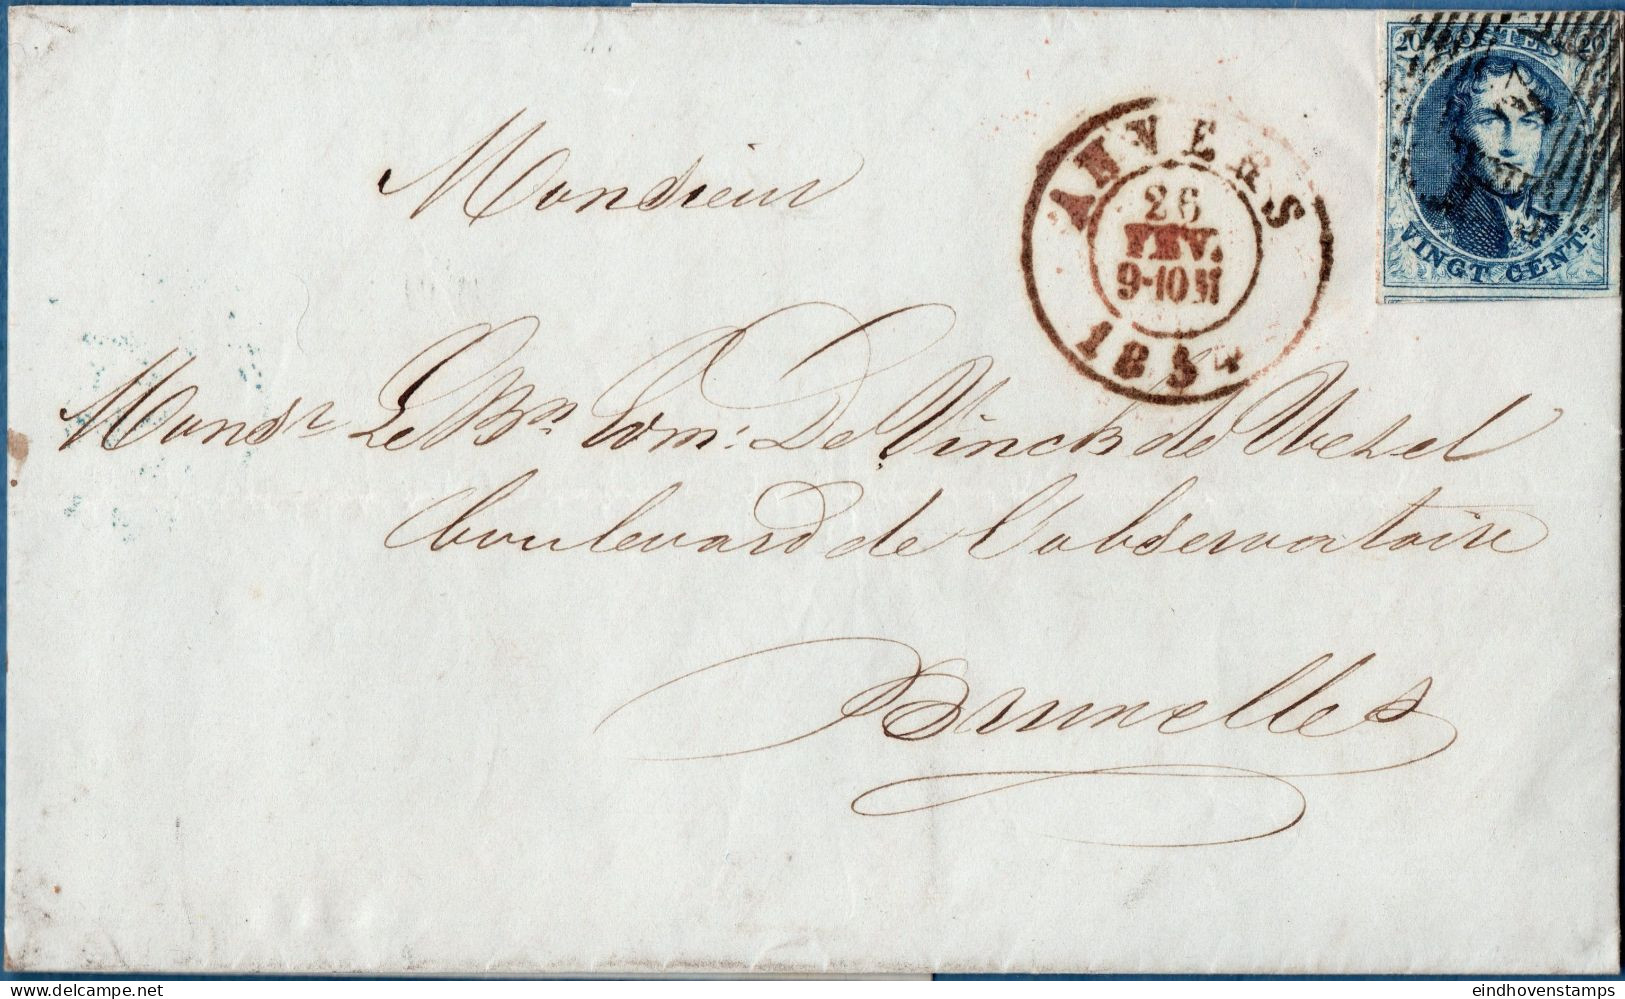 20 POSTES 20
VINGT CENTS.
ANVERS
26
FEV.
9-10 M
1854
Monsieur
Monsr Le Bn Com: De Vinck de Wezel
boulevard de l'observatoire
Bruxelles
delcampe.net
eindhovenstamps